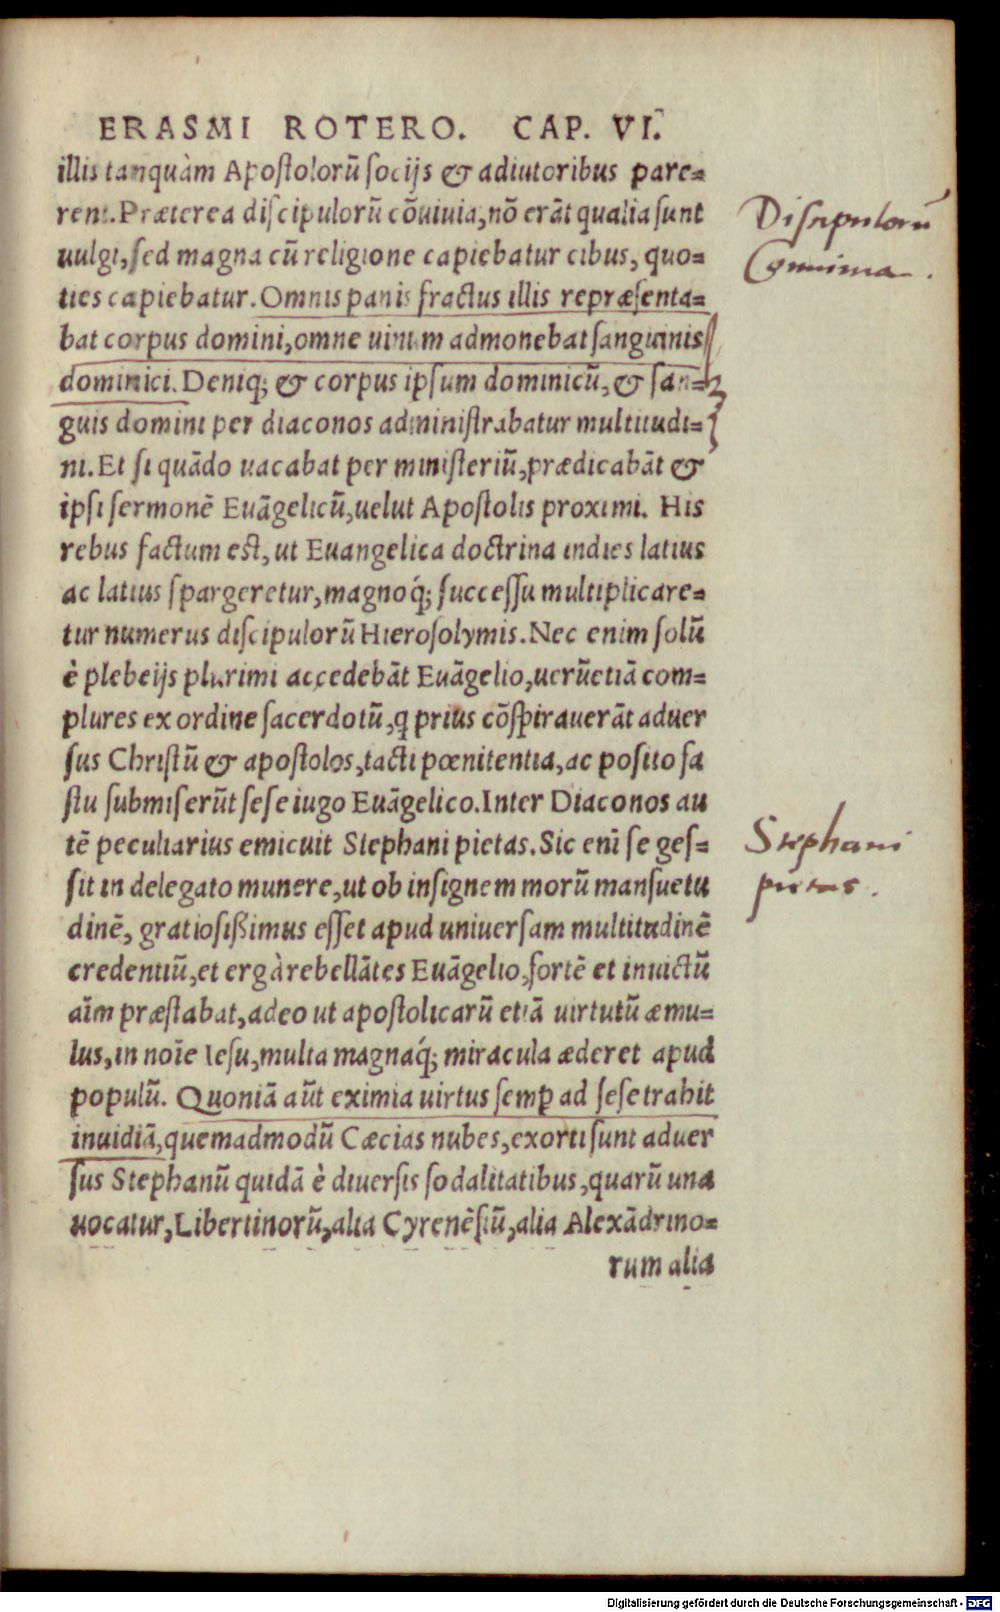 ERASMI ROTERO. CAP. VI.
illis tanquàm Apostolorũ socijs & adiutoribus pare=
rent. Præterea discipulorũ cõuiuia, nõ erãt qualia sunt
uulgi, sed magna cũ religione capiebatur cibus, quo=
ties capiebatur. Omnis panis fractus illis repræsenta=
bat corpus domini, omne uinum admonebat sanguinis
dominici. Deniq; & corpus ipsum dominicũ, & san=
guis domini per diaconos administrabatur multitudi=
ni. Et si quãdo uacabat per ministeriũ, prædicabãt &
ipsi sermonẽ Euãgelicũ, uelut Apostolis proximi. His
rebus factum est, ut Euangelica doctrina indies latius
ac latius spargeretur, magnoq́; successu multiplicare=
tur numerus discipulorũ Hierosolymis. Nec enim solũ
è plebeijs plurimi accedebãt Euãgelio, uerũetiã com=
plures ex ordine sacerdotũ, q prius cõspirauerãt aduer
sus Christũ & apostolos, tacti pœnitentia, ac posito fa
stu submiserũt sese iugo Euãgelico. Inter Diaconos au
tẽ peculiarius emicuit Stephani pietas. Sic eni se ges=
sit in delegato munere, ut ob insignem morũ mansuetu
dinẽ, gratiosißimus esset apud uniuersam multitudinẽ
credentiũ, et ergà rebellãtes Euãgelio, fortẽ et inuictũ
aĩm præstabat, adeo ut apostolicarũ etiã uirtutũ æmu=
lus, in noĩe Iesu, multa magnaq́; miracula æderet apud
populũ. Quoniã aũt eximia uirtus semꝑ ad sese trahit
inuidiã, quemadmodũ Cæcias nubes, exorti sunt aduer
sus Stephanũ quidã è diuersis sodalitatibus, quarũ una
uocatur, Libertinorũ, alia Cyrenẽsiũ, alia Alexãdrino=
rum alia
Discipulorũ
Conuiuia.
Stephani
pietas.
Digitalisierung gefördert durch die Deutsche Forschungsgemeinschaft - DFG